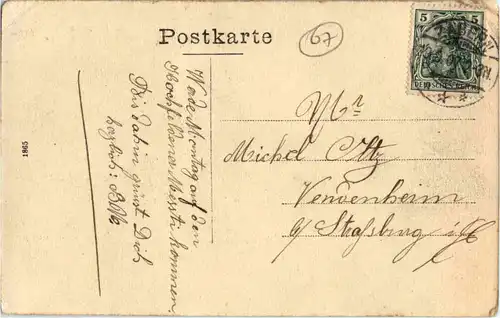 Postkarte
67
5
5
DEUTSCHES REICH
ZABERN
Mr
Michel Ott
Vendenheim
b/ Strassburg i/E
Werde Montag auf den
Hochfeldener Messti kommen
Bis dahin grüsst Dich
herzlich:
1865